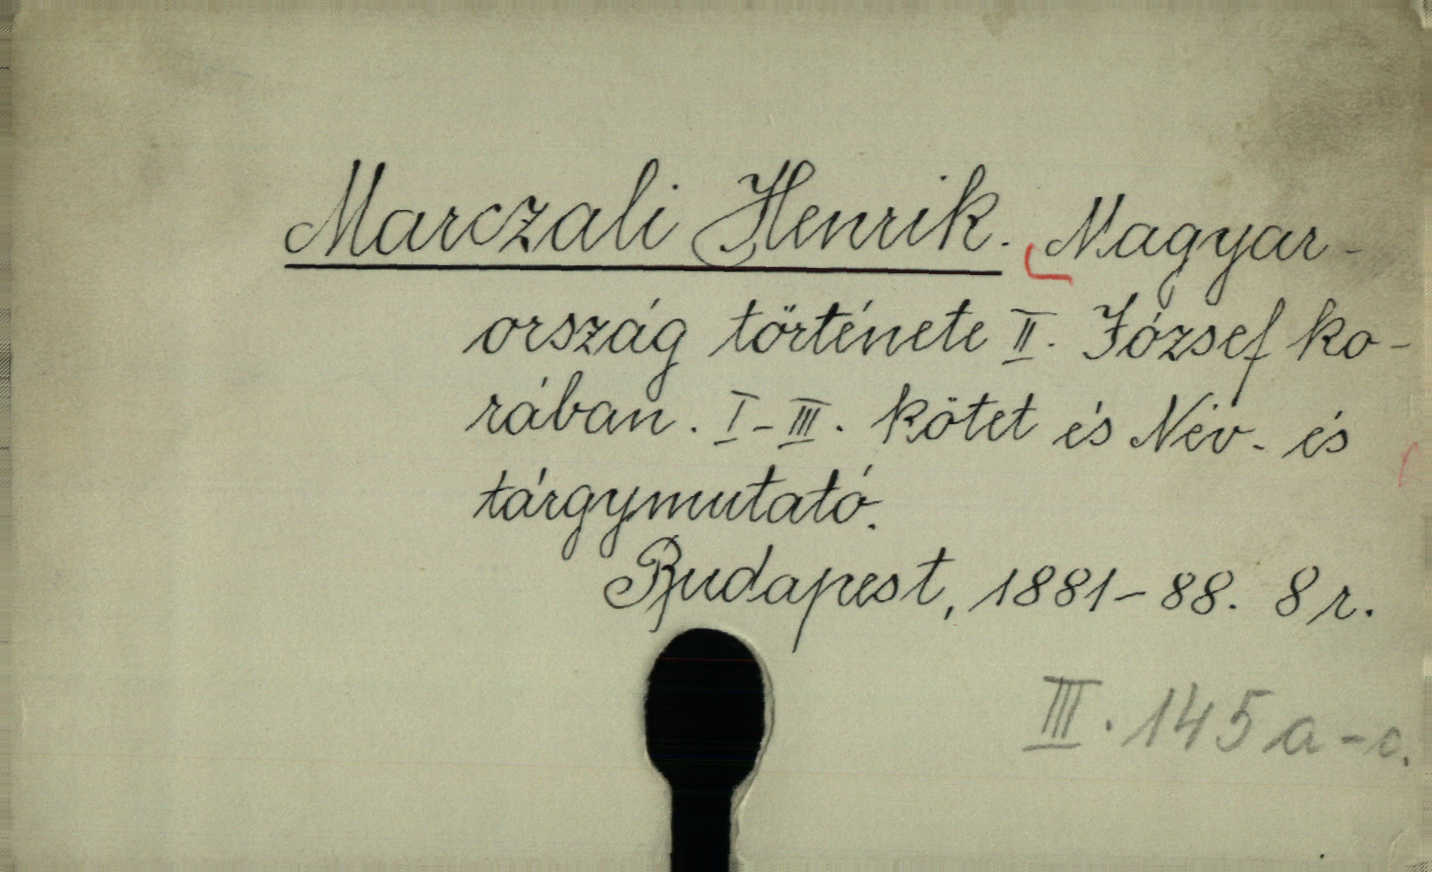 Marczali Henrik. Magyar-
ország története II. József ko-
rában. I-III. kötet és Név- és
tárgymutató.
Budapest, 1881-88. 8 r.
III. 145 a-c.